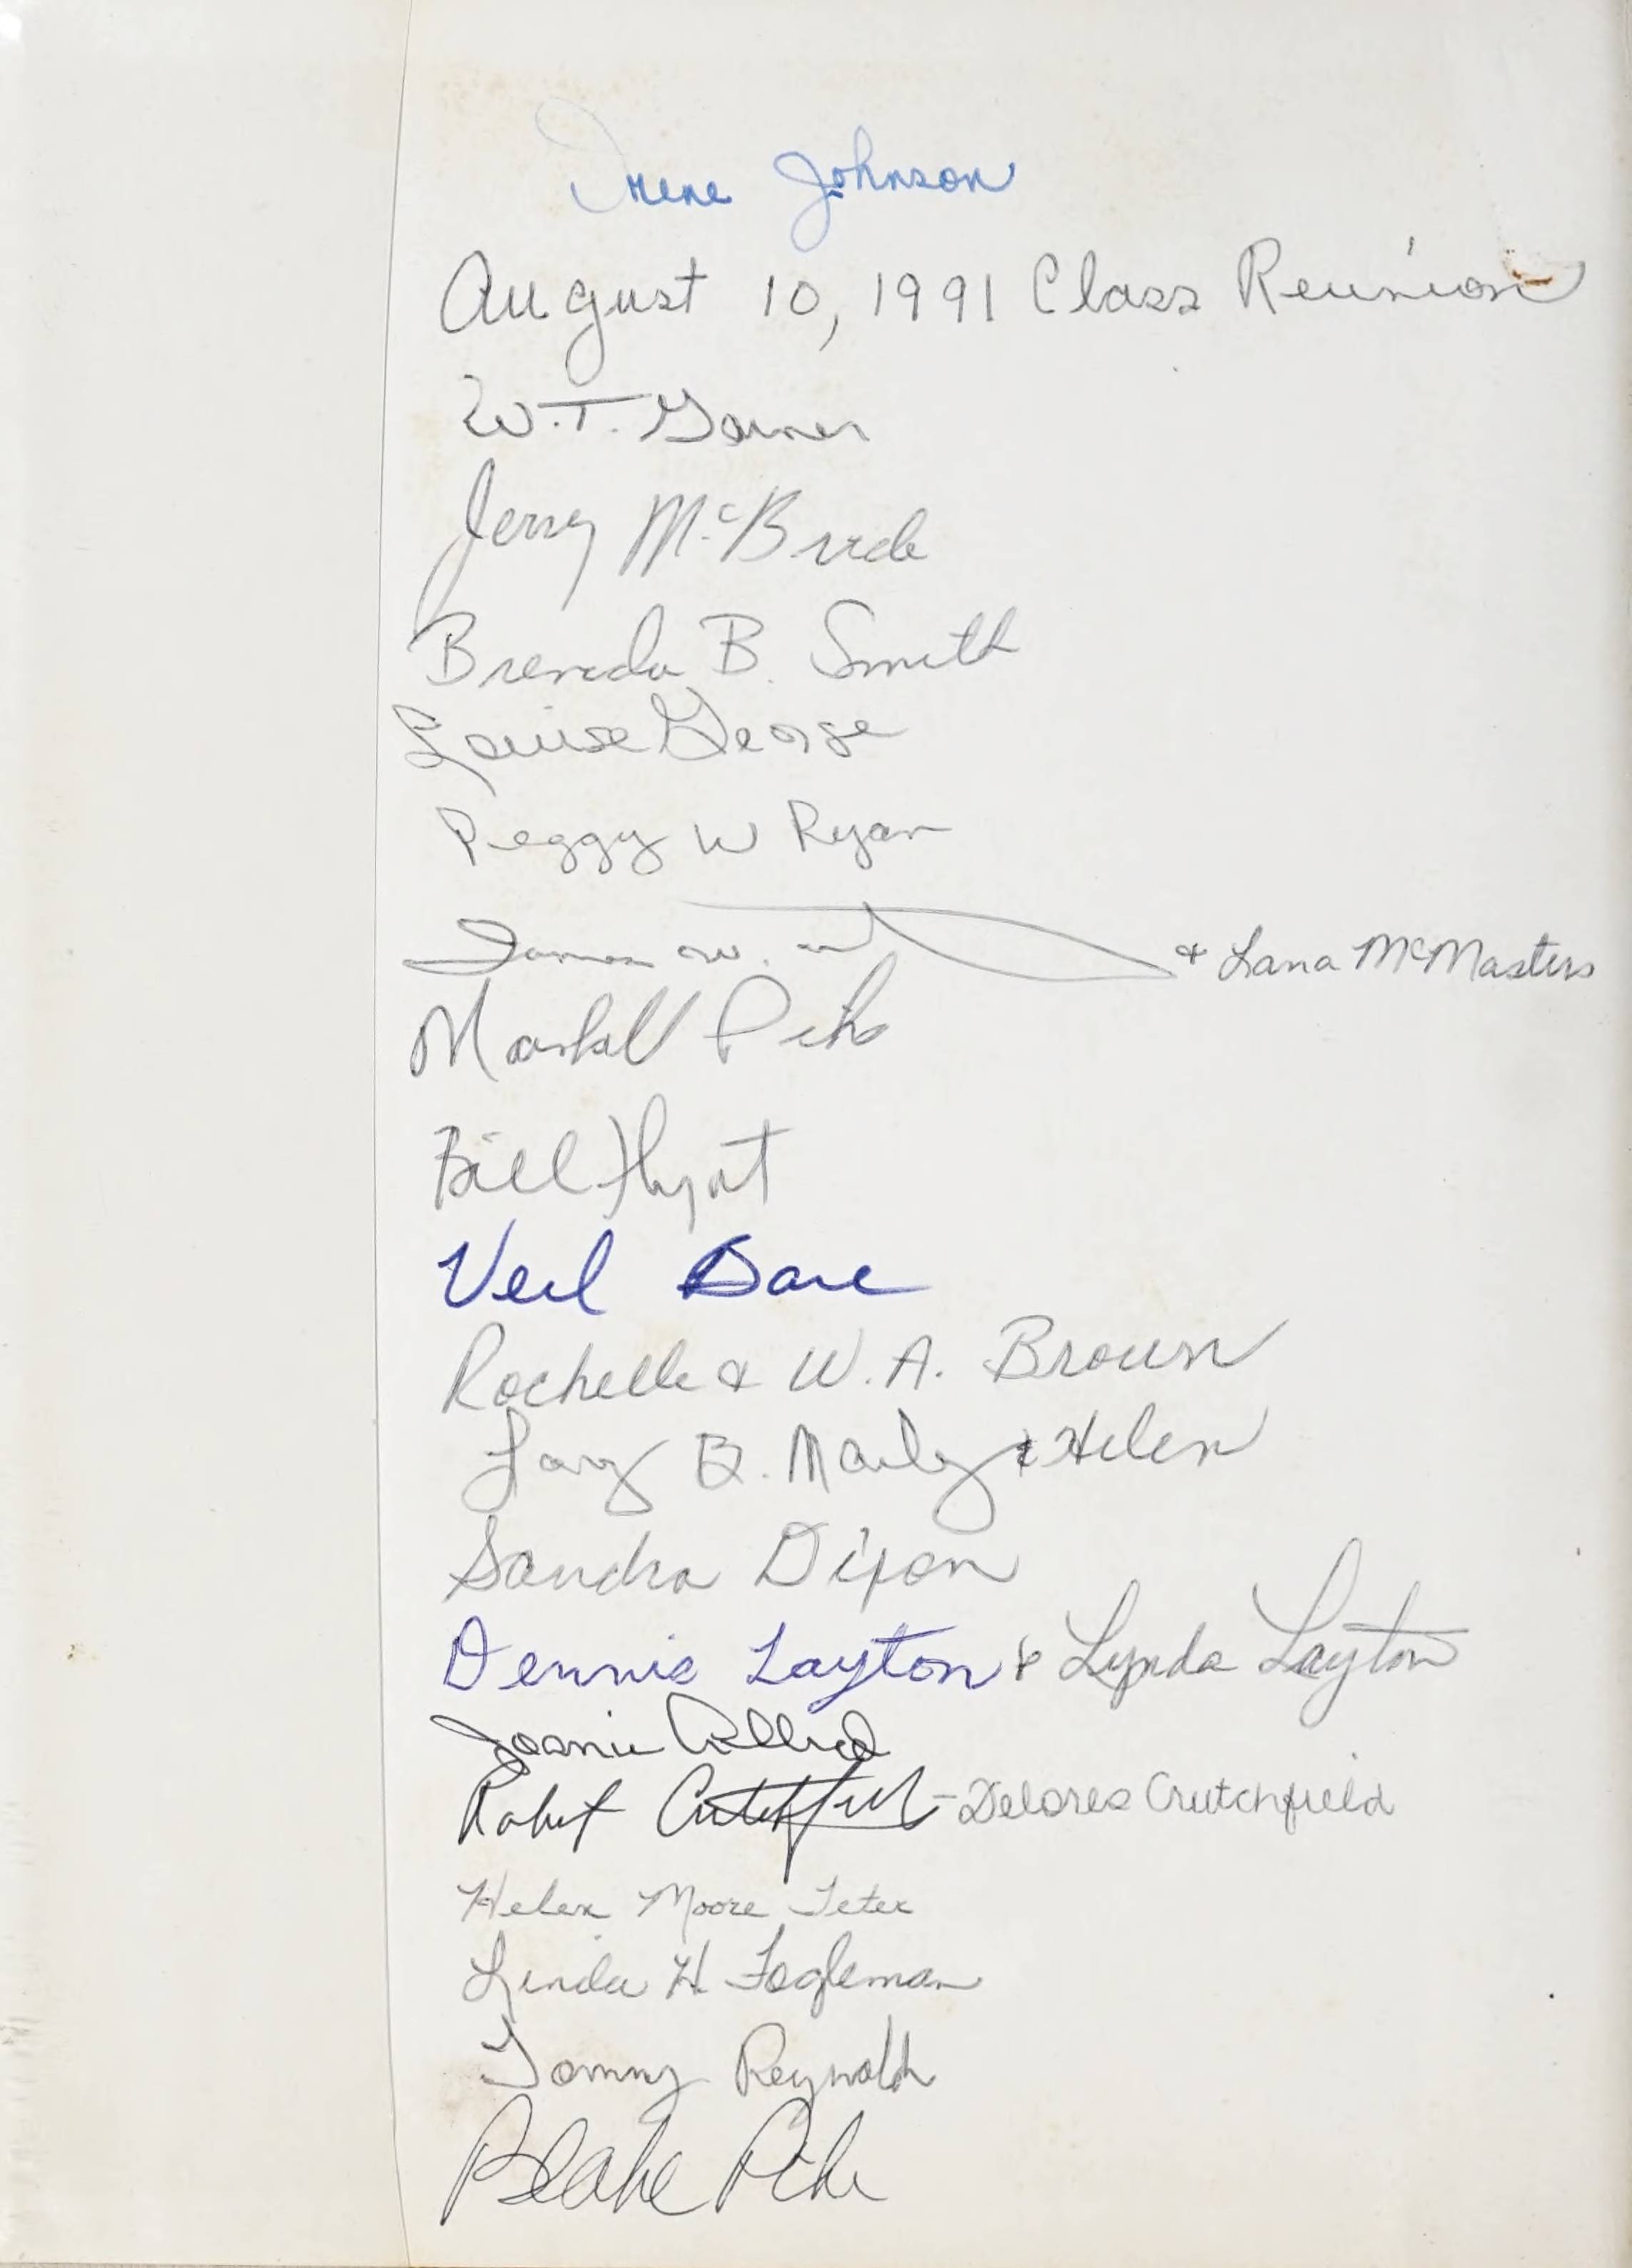 Irene Johnson
August 10, 1991 Class Reunion
W.T. Garner
Jerry McBride
Brenda B. Smith
Louise George
Peggy W Ryan
James W. & Lana McMasters
Marshall Pike
Bill Hyatt
Verl Dare
Rochelle & W.A. Brown
Larry B. Marley & Helen
Sandra Dixon
Dennis Layton & Lynda Layton
Joanie Allred
Robert Crutchfield - Delores Crutchfield
Helen Moore Teter
Linda H. Fogleman
Tommy Reynolds
Blake Pike